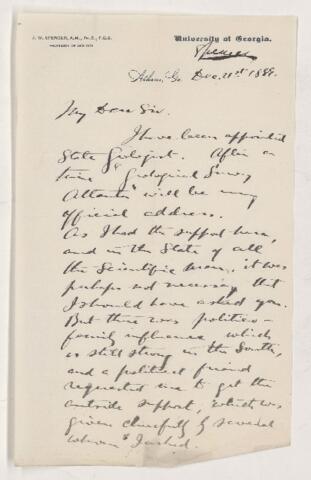 J. W. SPENCER, A.M., Ph.D., F.G.S.
University of Georgia.
Spencer
Athens, Ga. Dec. 21st 1889.
My Dear Sir.
I have been appointed
State Geologist. After a
time "Geological Survey
Atlanta" will be my
official address.
As I had the support here,
and in the State of all
the Scientific men, it was
perhaps not necessary that
I should have asked you.
But there was politico-
family influence which
is still strong in the South,
and a political friend
requested me to get the
outside support, which was
given cheerfully by several
whom I asked.